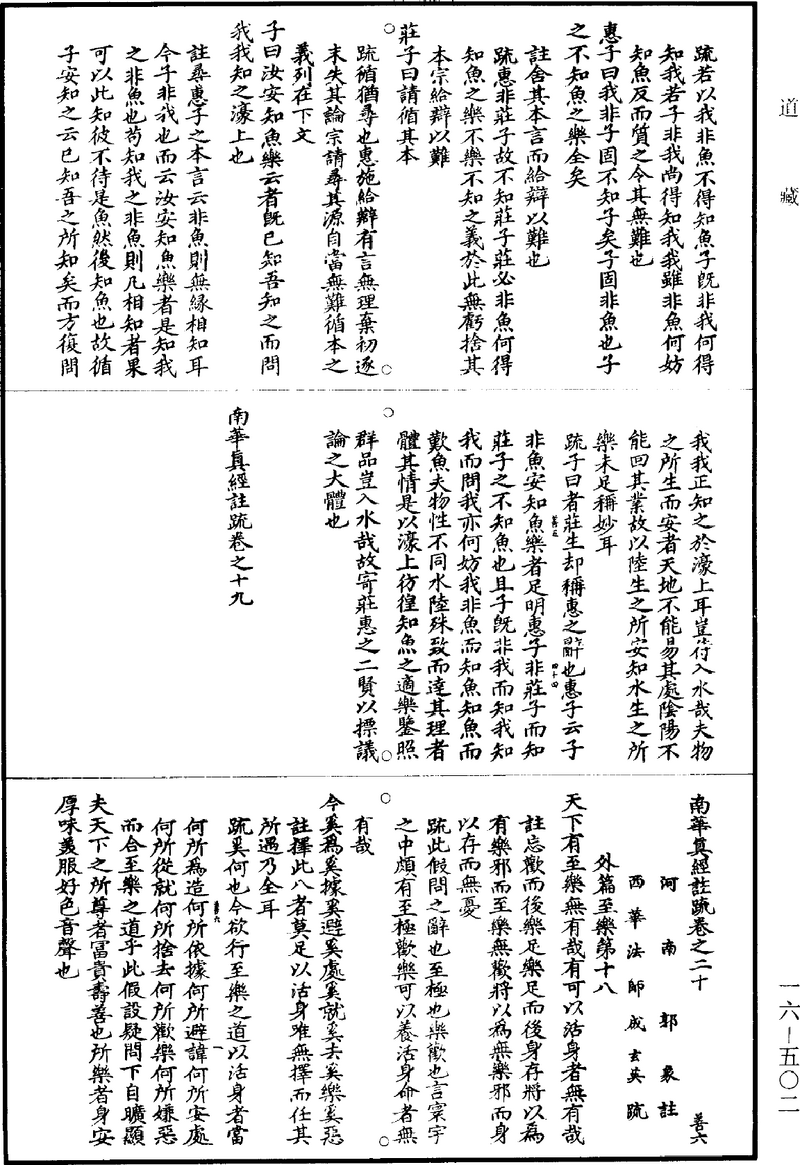 道藏
疏若以我非魚不得知魚子既非我何得
知我若子非我尚得知我我雖非魚何妨
知魚反而質之令其無難也
惠子曰我非子固不知子矣子固非魚也子
之不知魚之樂全矣
註舍其本言而給辯以難也
疏惠非莊子故不知莊子莊必非魚何得
知魚之樂不樂不知之義於此無虧捨其
本宗給辯以難
莊子曰請循其本
疏循猶尋也惠施給辯有言無理棄初逐
末失其論宗請尋其源自當無難循本之
義列在下文
子曰汝安知魚樂云者既已知吾知之而問
我我知之濠上也
註尋惠子之本言云非魚則無緣相知耳
今子非我也而云汝安知魚樂者是知我
之非魚也苟知我之非魚則凡相知者果
可以此知彼不待是魚然後知魚也故循
子安知之云已知吾之所知矣而方復問
我我正知之於濠上耳豈待入水哉夫物
之所生而安者天地不能易其處陰陽不
能回其業故以陸生之所安知水生之所
樂未足稱妙耳
疏子曰者莊生却稱惠之辭也惠子云子
非魚安知魚樂者足明惠子非莊子而知
莊子之不知魚也且子既非我而知我知
我而問我亦何妨我非魚而知魚知魚而
歎魚夫物性不同水陸殊致而達其理者
體其情是以濠上彷徨知魚之適樂鑒照
群品豈入水哉故寄莊惠之二賢以標議
論之大體也
南華真經註疏卷之十九
南華真經註疏卷之二十
善六
河南郭象註
西華法師成玄英疏
外篇至樂第十八
天下有至樂無有哉有可以活身者無有哉
註忘歡而後樂足樂足而後身存將以為
有樂邪而至樂無歡將以為無樂邪而身
以存而無憂
疏此假問之辭也至極也樂歡也言寰宇
之中頗有至極歡樂可以養活身命者無
有哉
今奚為奚據奚避奚處奚就奚去奚樂奚惡
註擇此八者莫足以活身唯無擇而任其
所遇乃全耳
疏奚何也今欲行至樂之道以活身者當
何所為造何所依據何所避諱何所安處
何所從就何所捨去何所歡樂何所嫌惡
而合至樂之道乎此假設疑問下自曠顯
夫天下之所尊者富貴壽善也所樂者身安
厚味美服好色音聲也
一六—五〇二